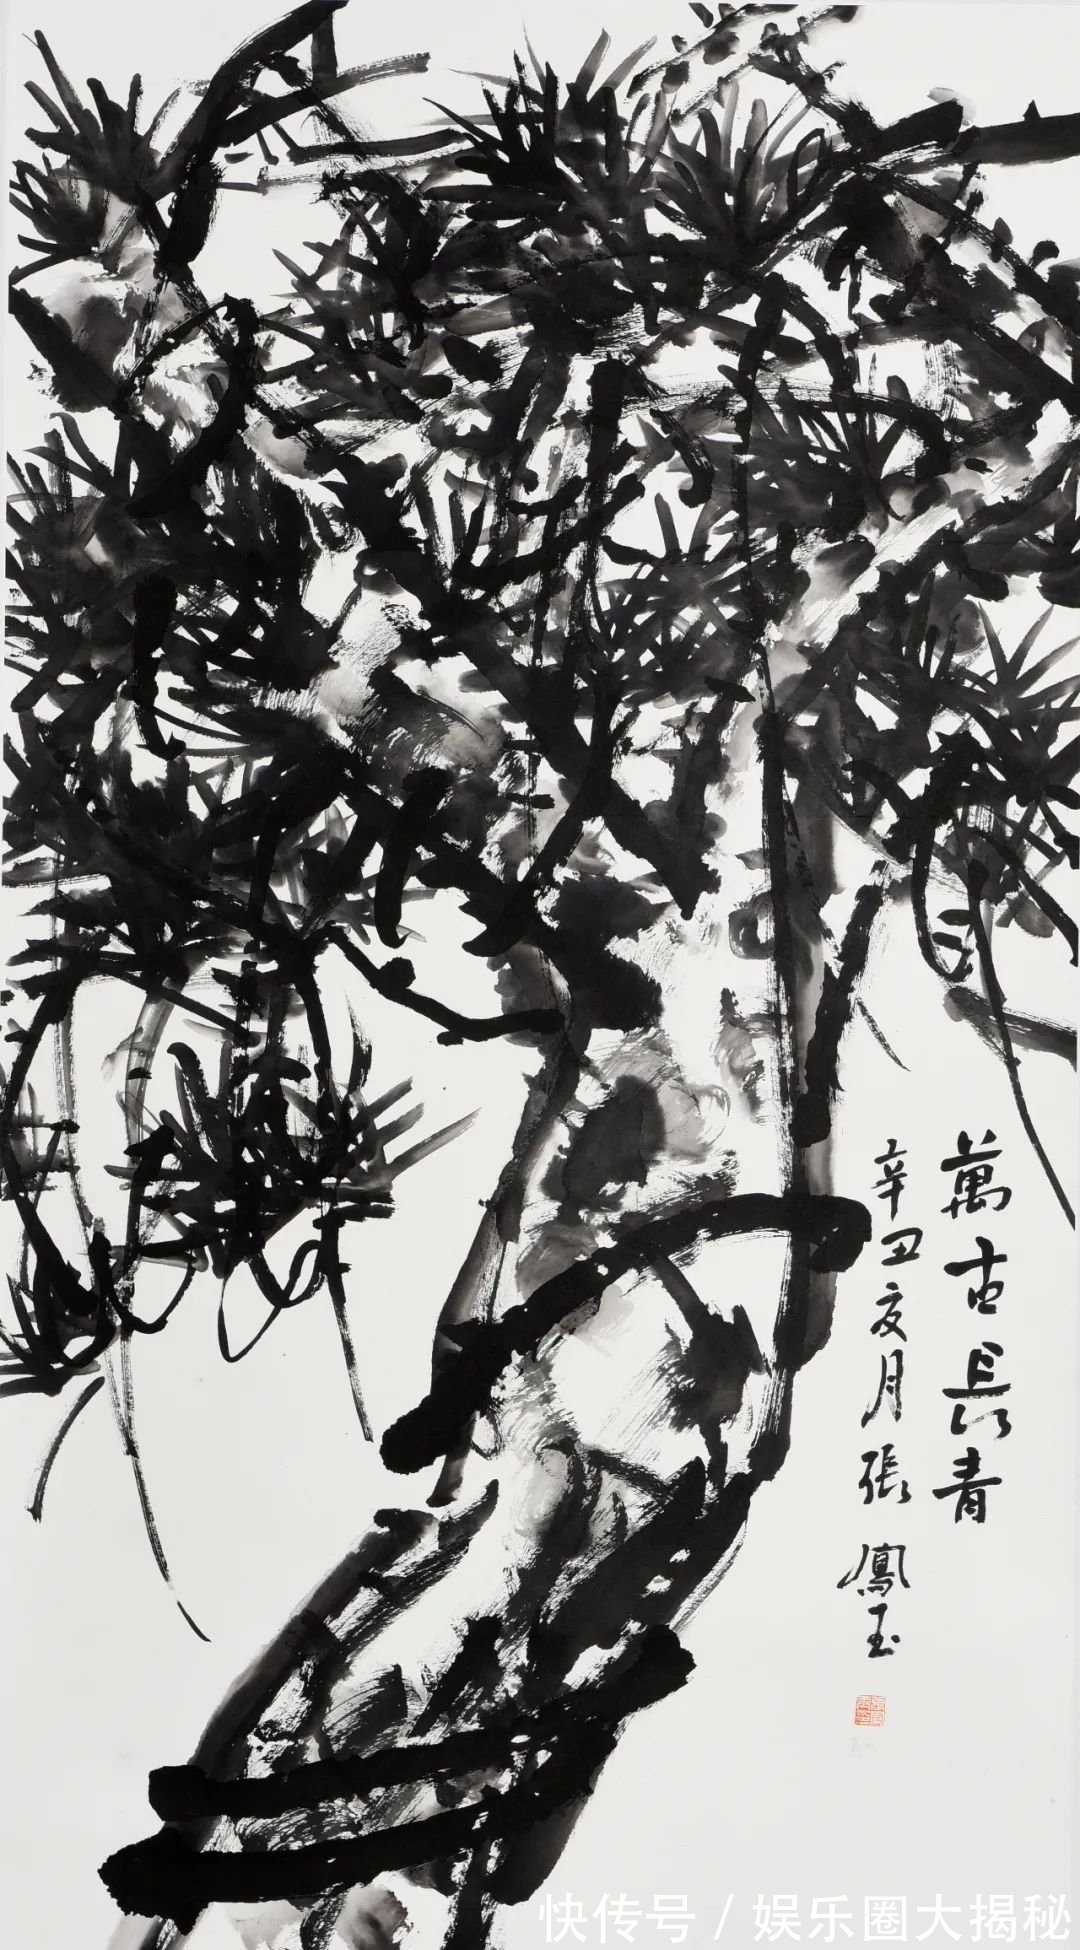 萬古長青
辛丑亥月張鳳玉
快传号/娱乐圈大揭秘